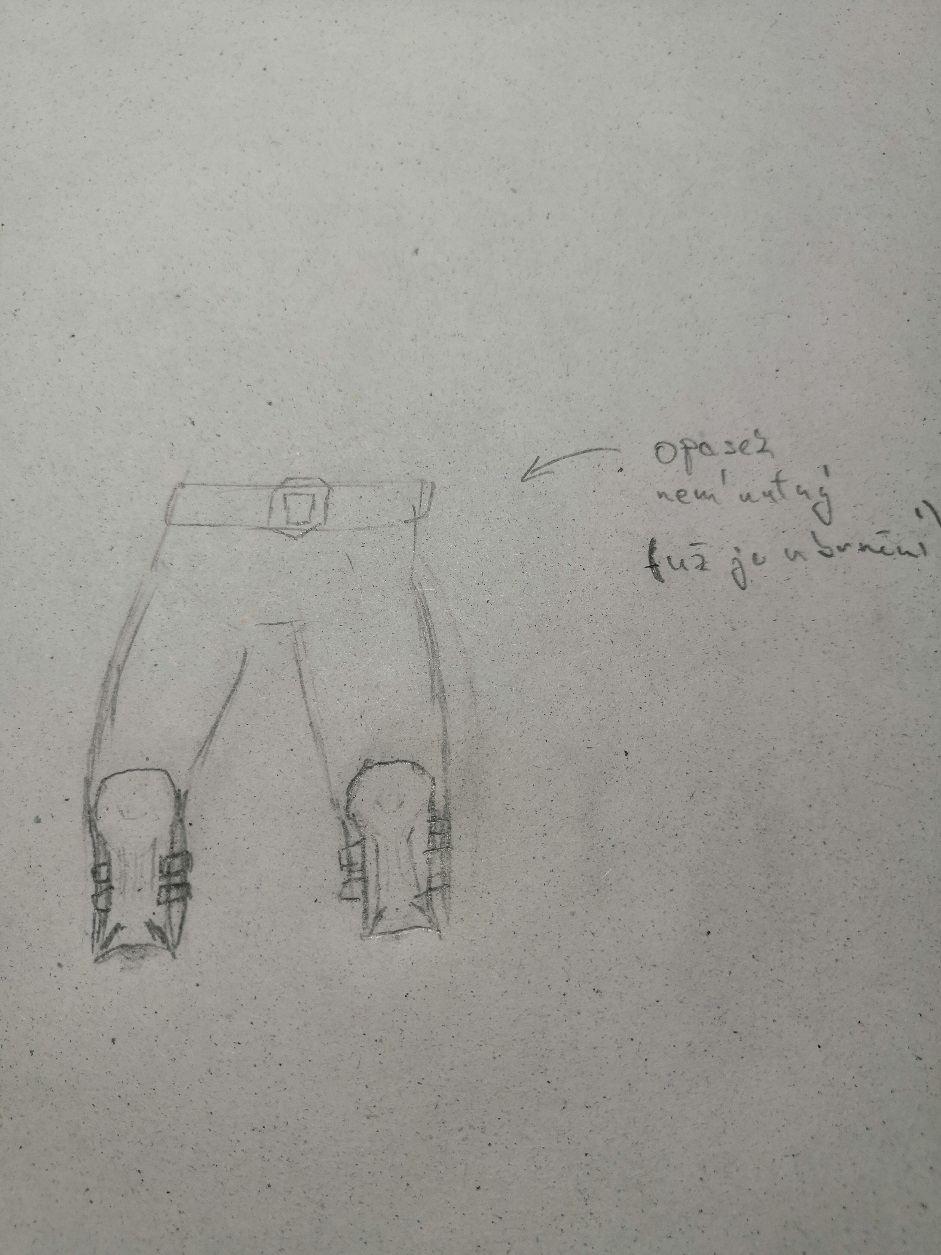 opasek
není nutný
(už je u brnění)